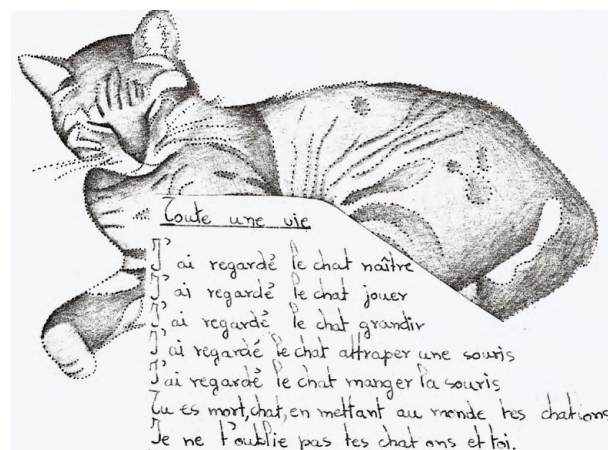 Toute une vie
J'ai regardé le chat naître
J'ai regardé le chat jouer
J'ai regardé le chat grandir
J'ai regardé le chat attraper une souris
J'ai regardé le chat manger la souris
Tu es mort, chat, en mettant au monde tes chatons
Je ne t'oublie pas tes chatons et toi.